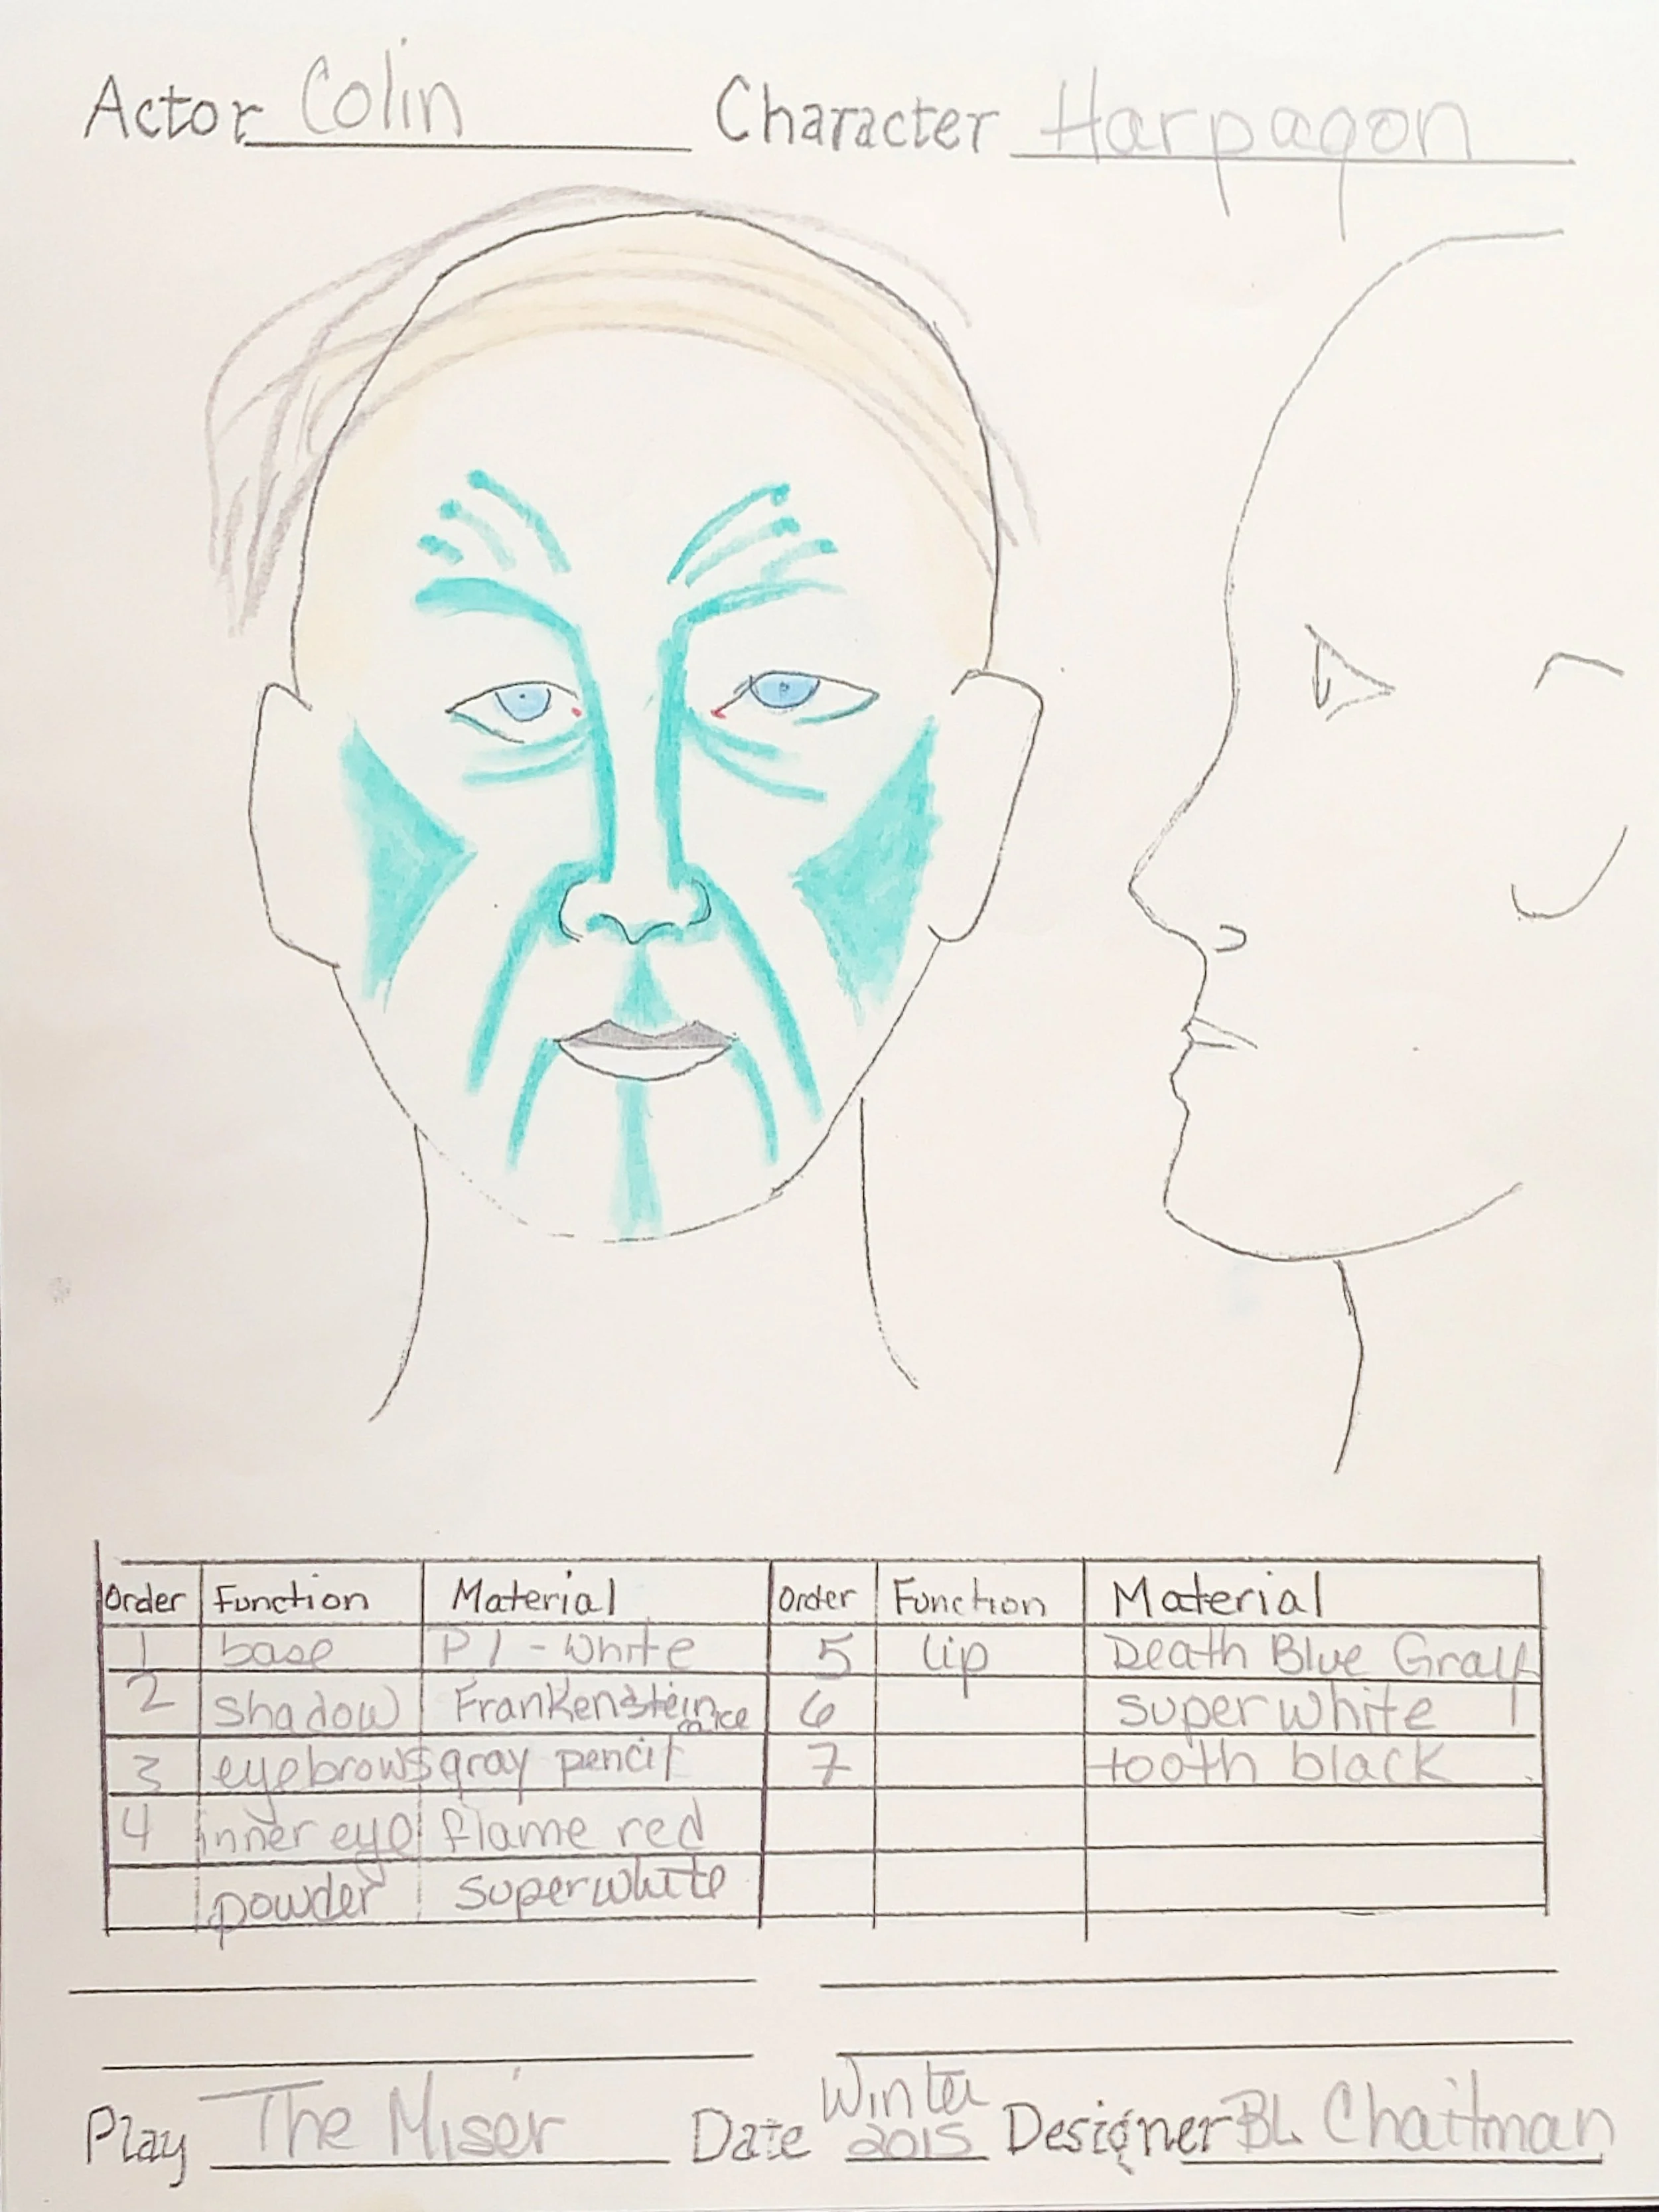 Actor Colin Character Harpagon
Order Function Material Order Function Material
1 base P1 - white 5 lip Death Blue Gray
2 shadow Frankenstein 6 superwhite
3 eyebrows gray pencil 7 tooth black
4 inner eye flame red
powder superwhite
Play The Miser Date Winter 2015 Designer BL Chaitman